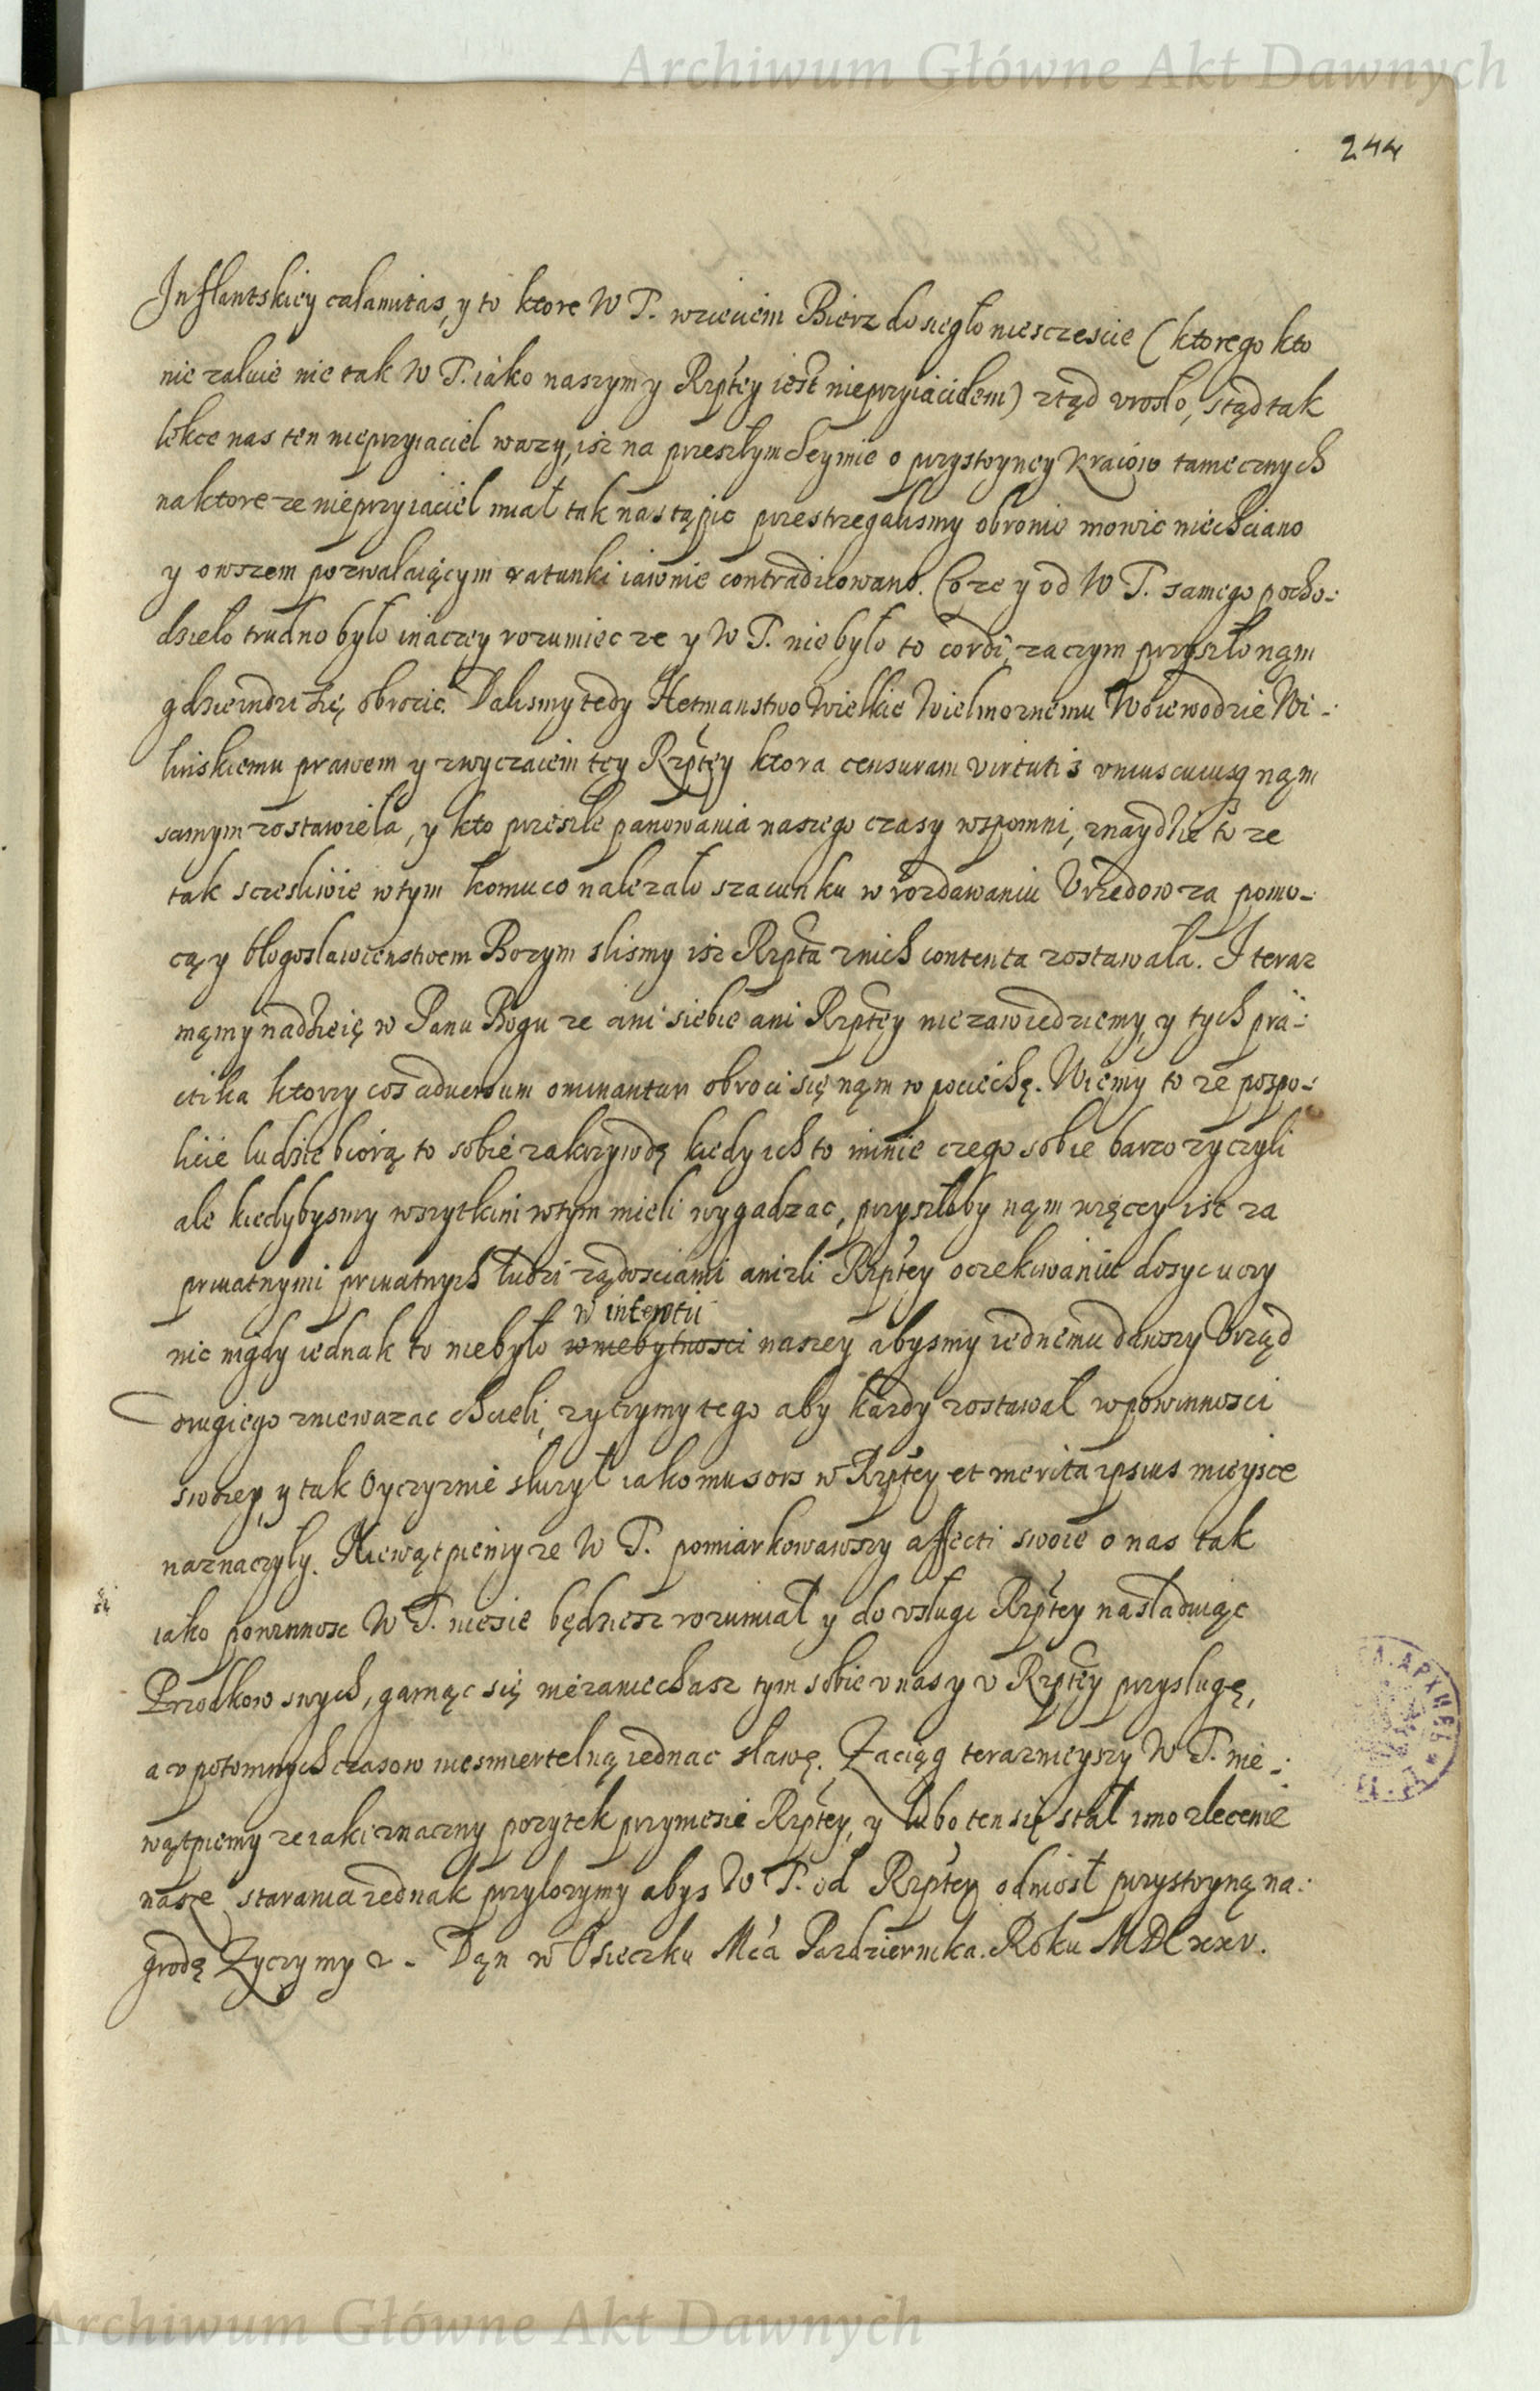 Archiwum Główne Akt Dawnych
244
Inflantskiey calamitas, y to ktore W T. wzięciem Bierz dosięgło niesczescie (ktorego kto
nie załuie nie tak W T. iako naszym y Rzptey iest nieprzyiacielem) ztąd vrosło, ztąd tak
lekce nas ten nieprzyiaciel wazy, isz na przeszłym Seymie o przystoyney kraiow tamecznych
na ktore ze nieprzyiaciel miał tak nastąpic przestrzegalismy obronie mowic niechciano
y owszem pozwalaiącym ratunki iawnie contradicowano. Co ze y od W T. samego pocho-
dzieło trudno było inaczey rozumiec ze y W T. nie było to cordi, zaczym przyszło nąm
gdzieindzi się obrocic. Dalismy tedy Hetmanstwo Wielkie Wielmoznemu Woiewodzie Wi-
linskiemu prawem y zwyczaiem tey Rzptey ktora censuram virtutis vniuscuiusq nąm
samym zostawieła, y kto przeszłe panowania naszego czasy wspomni, znaydzie to ze
tak sczesliwie w tym komu co nalezało szacunku w rozdawaniu Vrzędow za pomo-
cą y błogosławienstwem Bozym slismy isz Rzpta znich contenta zostawała. I teraz
mąmy nadzieię w Panu Bogu ze ani siebie ani Rzptey niezawiedziemy, y tych pra-
ctika ktorzy cos aduersum ominantur obroci się nąm w pociechę. Wiemy to ze pospo-
licie ludzie biorą to sobie za krzywdę kiedy ich to minie czego sobie barzo zyczyli
ale kiedybysmy wszytkim w tym mieli wygadzac, przyszłoby nąm więcey isc za
priuatnymi priuatnych ludzi ządosciami anizli Rzptey oczekiwaniu dosyc uczy
w intentii
nic nigdy iednak to niebyło w niebytnosci naszey abysmy iednemu dawszy Vrząd
drugiego zniewazac chcieli, zyczymy tego aby kazdy zostawał w powinnosci
swoiey, y tak Oyczyznie słuzył iako mu sors w Rzptey et merita ipsius mieysce
naznaczyły. Niewątpiemy ze W T. pomiarkowawszy affecti swoie o nas tak
iako powinnosc W T. niesie będziesz rozumiał y do vsługi Rzptey nasladuiąc
Przodkow swych, garnąc się niezaniechasz tym sobie v nas y v Rzptey przysługę,
a v potomnych czasow niesmiertelną iednac sławę. Zaciąg teraznieyszy W T. nie-
wątpiemy ze iaki znaczny pozytek przyniesie Rzptey, y lubo ten się stał imo zlecenie
nasze starania iednak przylozymy abys W T. od Rzptey odniosł przystoyną na-
grodę Zyczymy &. Dąn w Osieczku Mca Pazdziernika. Roku MDCxxv.
Archiwum Główne Akt Dawnych